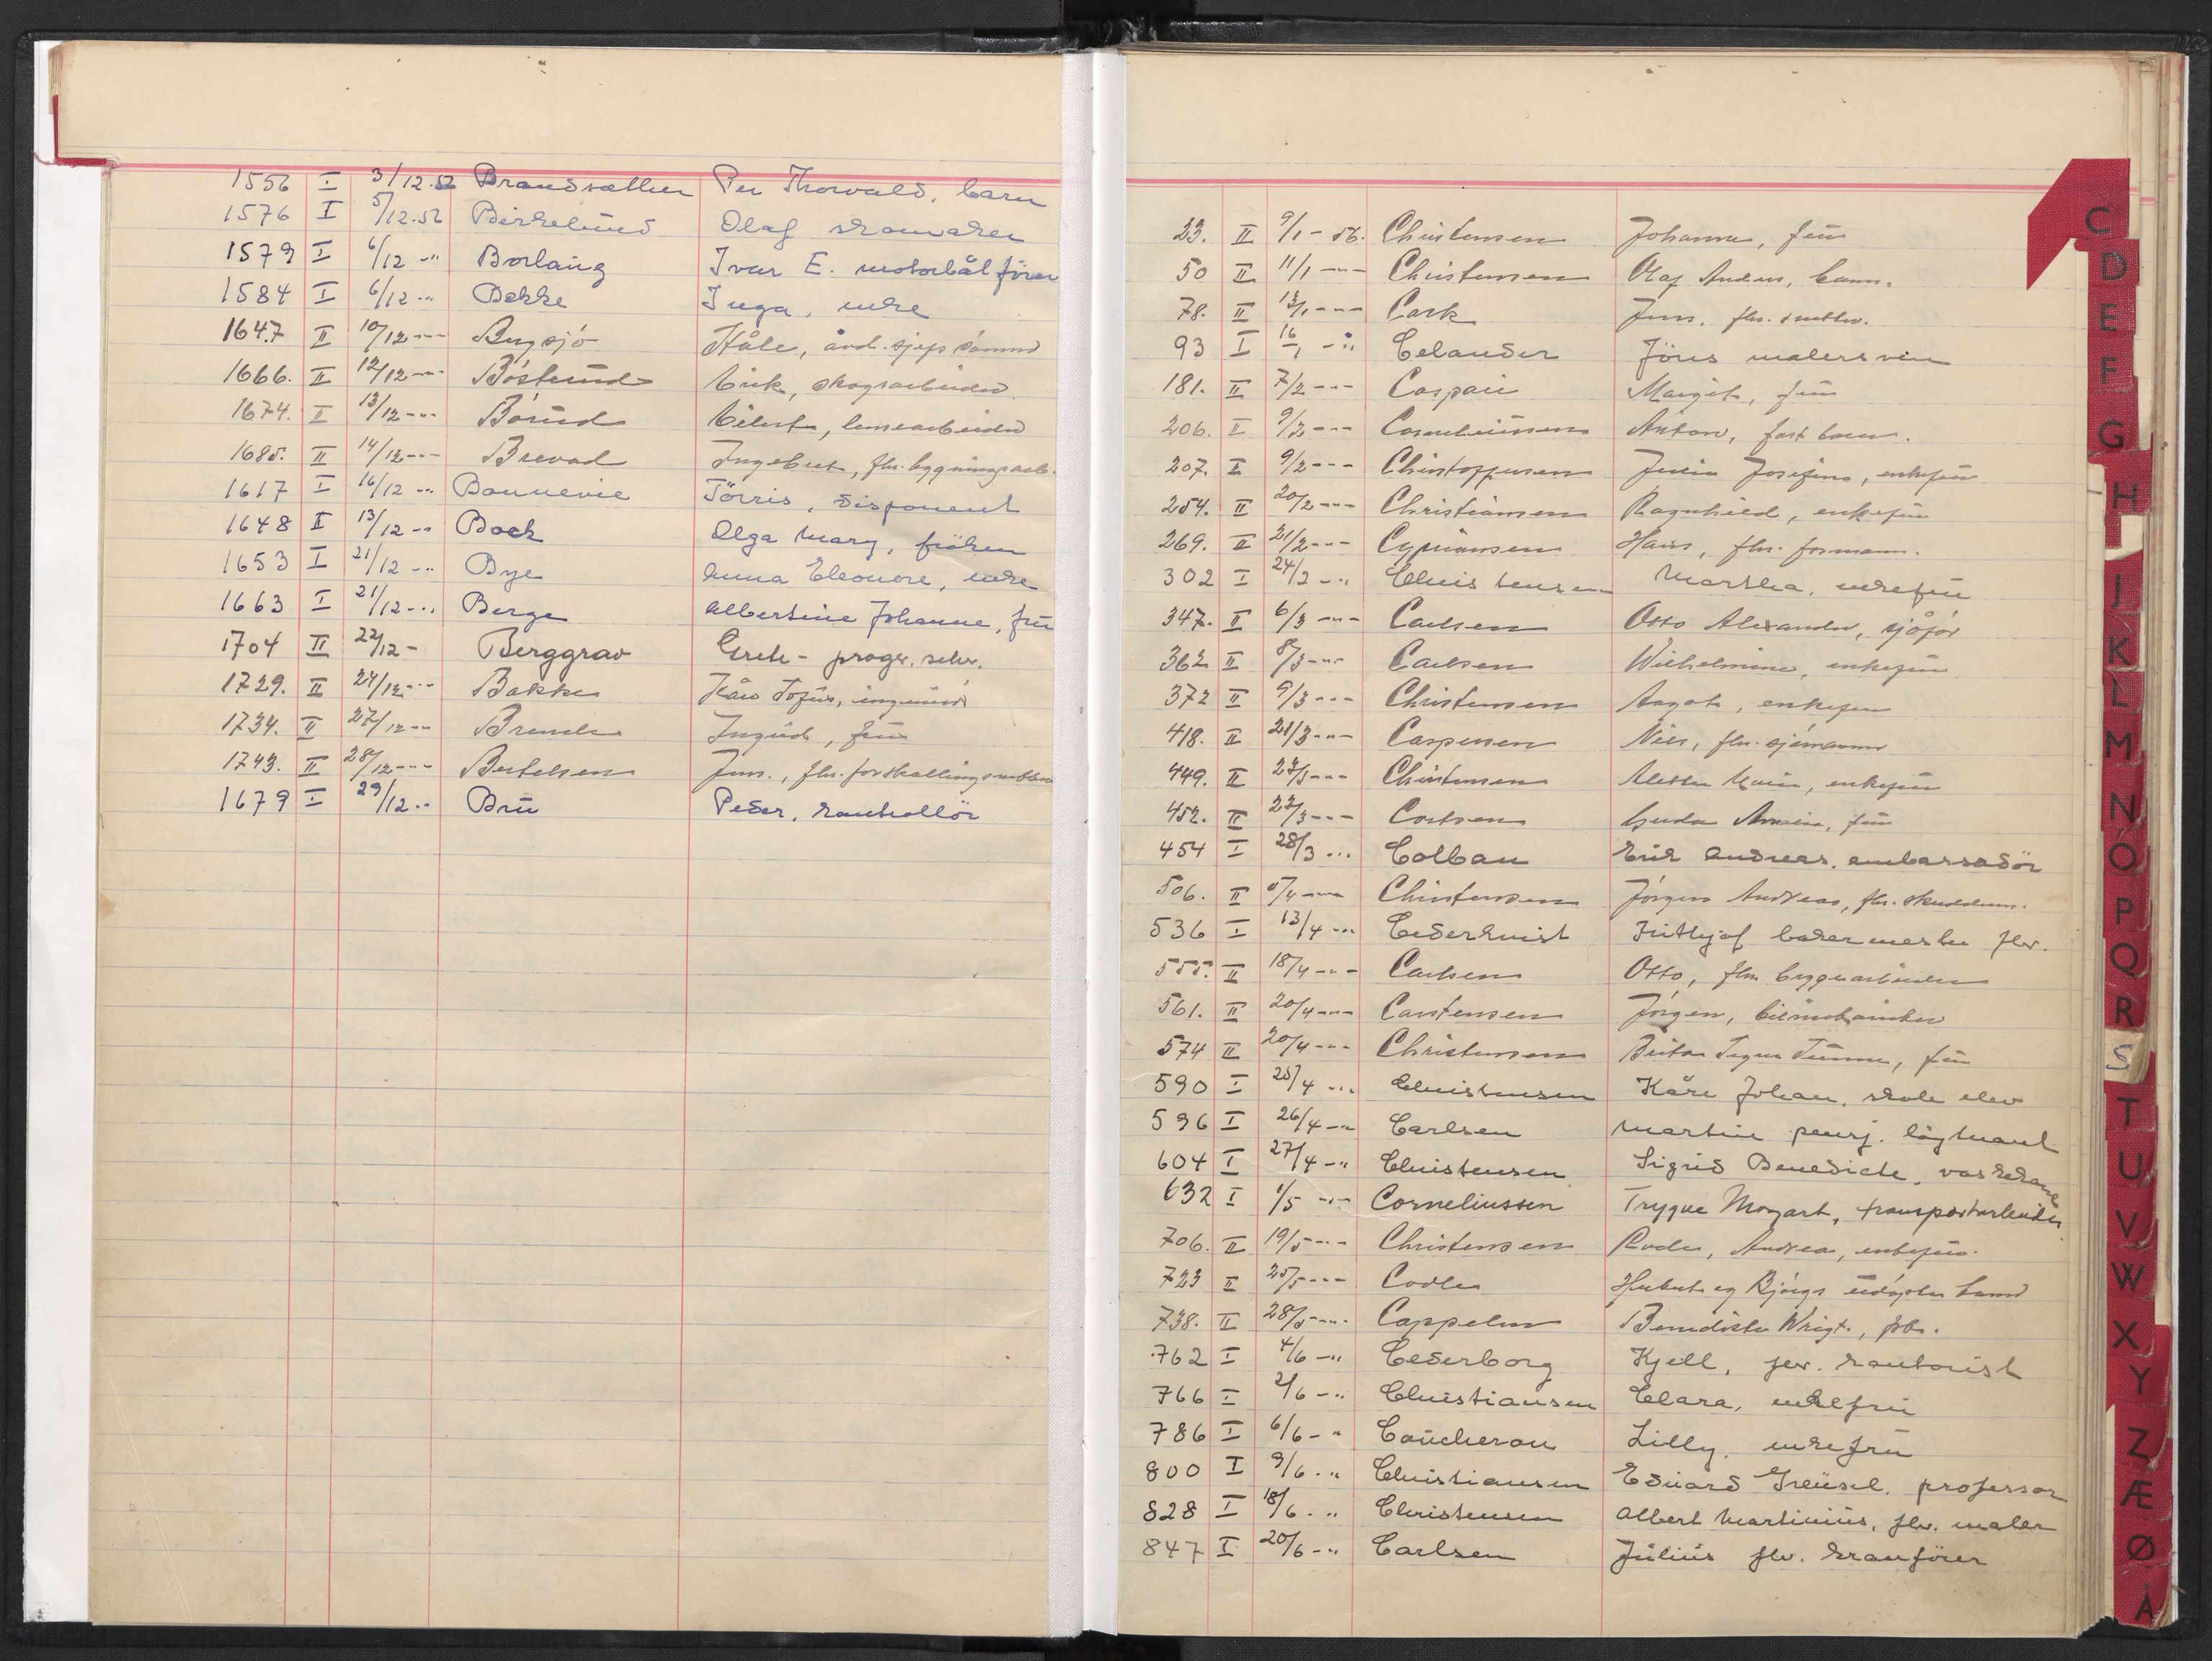 1556 I 3/12.56 Brandsæther Per Thorvald, barn
1576 I 5/12.56 Birkelund Olaf skomaker
1579 I 6/12 -" Borlaug Ivar E. motorbåtförer
1584 I 6/12 -" Bekke Inga, enke
1647. II 10/12 -"- Bugsjö Ståle,
1666. II 12/12 -"- Böstrud Erik, skogsarbeider.
1674. II 13/12 -"- Börud Eilert, lensearbeider
1685. II 14/12 -"- Brevad Ingebret, fhv. bygningsarb.
1617 I 16/12 -" Bonnevie Törris, disponent
1648 I 13/12 -" Bock Olga Mary, fröken
1653 I 21/12 -" Bye Anna Eleonore, enke
1663 I 21/12 -" Berge Albertine Johanne, frü
1704 II 22/12 - Berggrav Grete - progr. sekr.
1729. II 24/12 -"- Bakke Kåre Tofüs, ingeniör
1734. II 27/12 -"- Brende Ingrid, frü
1743. II 28/12 -"- Bertelsen Jens., fhv. forskallingssnekker
1679 I 29/12 -" Brü Peder, kontrollör
C
D
E
F
G
H
I
J
K
L
M
N
O
P
Q
R
S
T
U
V
W
X
Y
Z
Æ
Ø
Å
23. II 9/1 - 56. Christensen Johanne, frü
50 II 11/1 -"- Christensen Olaf Anders, bann.
78. II 13/1 -"- Cock Jens. fhv. snekker.
93 I 16/1 -" Celander Jöns malersven
181. II 7/2 -"- Caspari Margit, frü
206. II 9/2 -"- Corneliüssen Anton,
207. II 9/2 -"- Christoffersen Josefine, enkefrü
254. II 20/2 -"- Christiansen Ragnhild, enkefrü
269. II 21/2 -"- Cypriansen Hans, fhv. formann.
302 I 24/2 -" Christensen Martha, enkefrü
347. II 6/3 -"- Carlsen Otto Alexander,
362 II 8/3 -"- Carlsen Wilhelmine, enkefrü
372 II 9/3 -"- Christensen Aagot, enkefrü
418. II 21/3 -"- Caspersen Nils, fhv. sjömann
449. II 27/3 -"- Christensen Marie, enkefrü
452. II 27/3 -"- Costsen Amalia, frü
454 I 28/3 -" Colban Erik Andreas, ambassadör
506. II 5/4 -"- Christensen Jörgen Andreas, fhv.
536 I 13/4 -" Cederkvist Fritthjof bakermester fhv.
555. II 18/4 -"- Carlsen Otto, fhv. bryggearbeider
561. II 20/4 -"- Carstensen Jörgen,
574 II 20/4 -"- Christensen Signe frü
590 I 25/4 -" Christensen Kåre Johan, skole elev
596 I 26/4 -" Carlsen Martin pensj. löytnant
604 I 27/4 -" Christensen Sigrid Benedicte, vaskekone
632 I 1/5 -"- Corneliussen Trygve Mozart, transportarbeider
706. II 19/5 -"- Christensen Andrea, enkefrü.
723 II 25/5 -"- Codler og Björgs udöpte barn
738. II 28/5 -"- Cappelen Benedicte Wrigt.,
762 I 4/6 -" Cederborg Kjell, fhv. kontorist
766 I 2/6 -" Christiansen Clara, enkefrü
786 I 6/6 -" Caücheron Lilly, enkefrü
800 I 9/6 -" Christiansen Edüard professor
828 I 18/6 -" Christensen Albert Martiniüs, fhv. maler
847 I 20/6 -" Carlsen Jüliüs fhv. kranförer